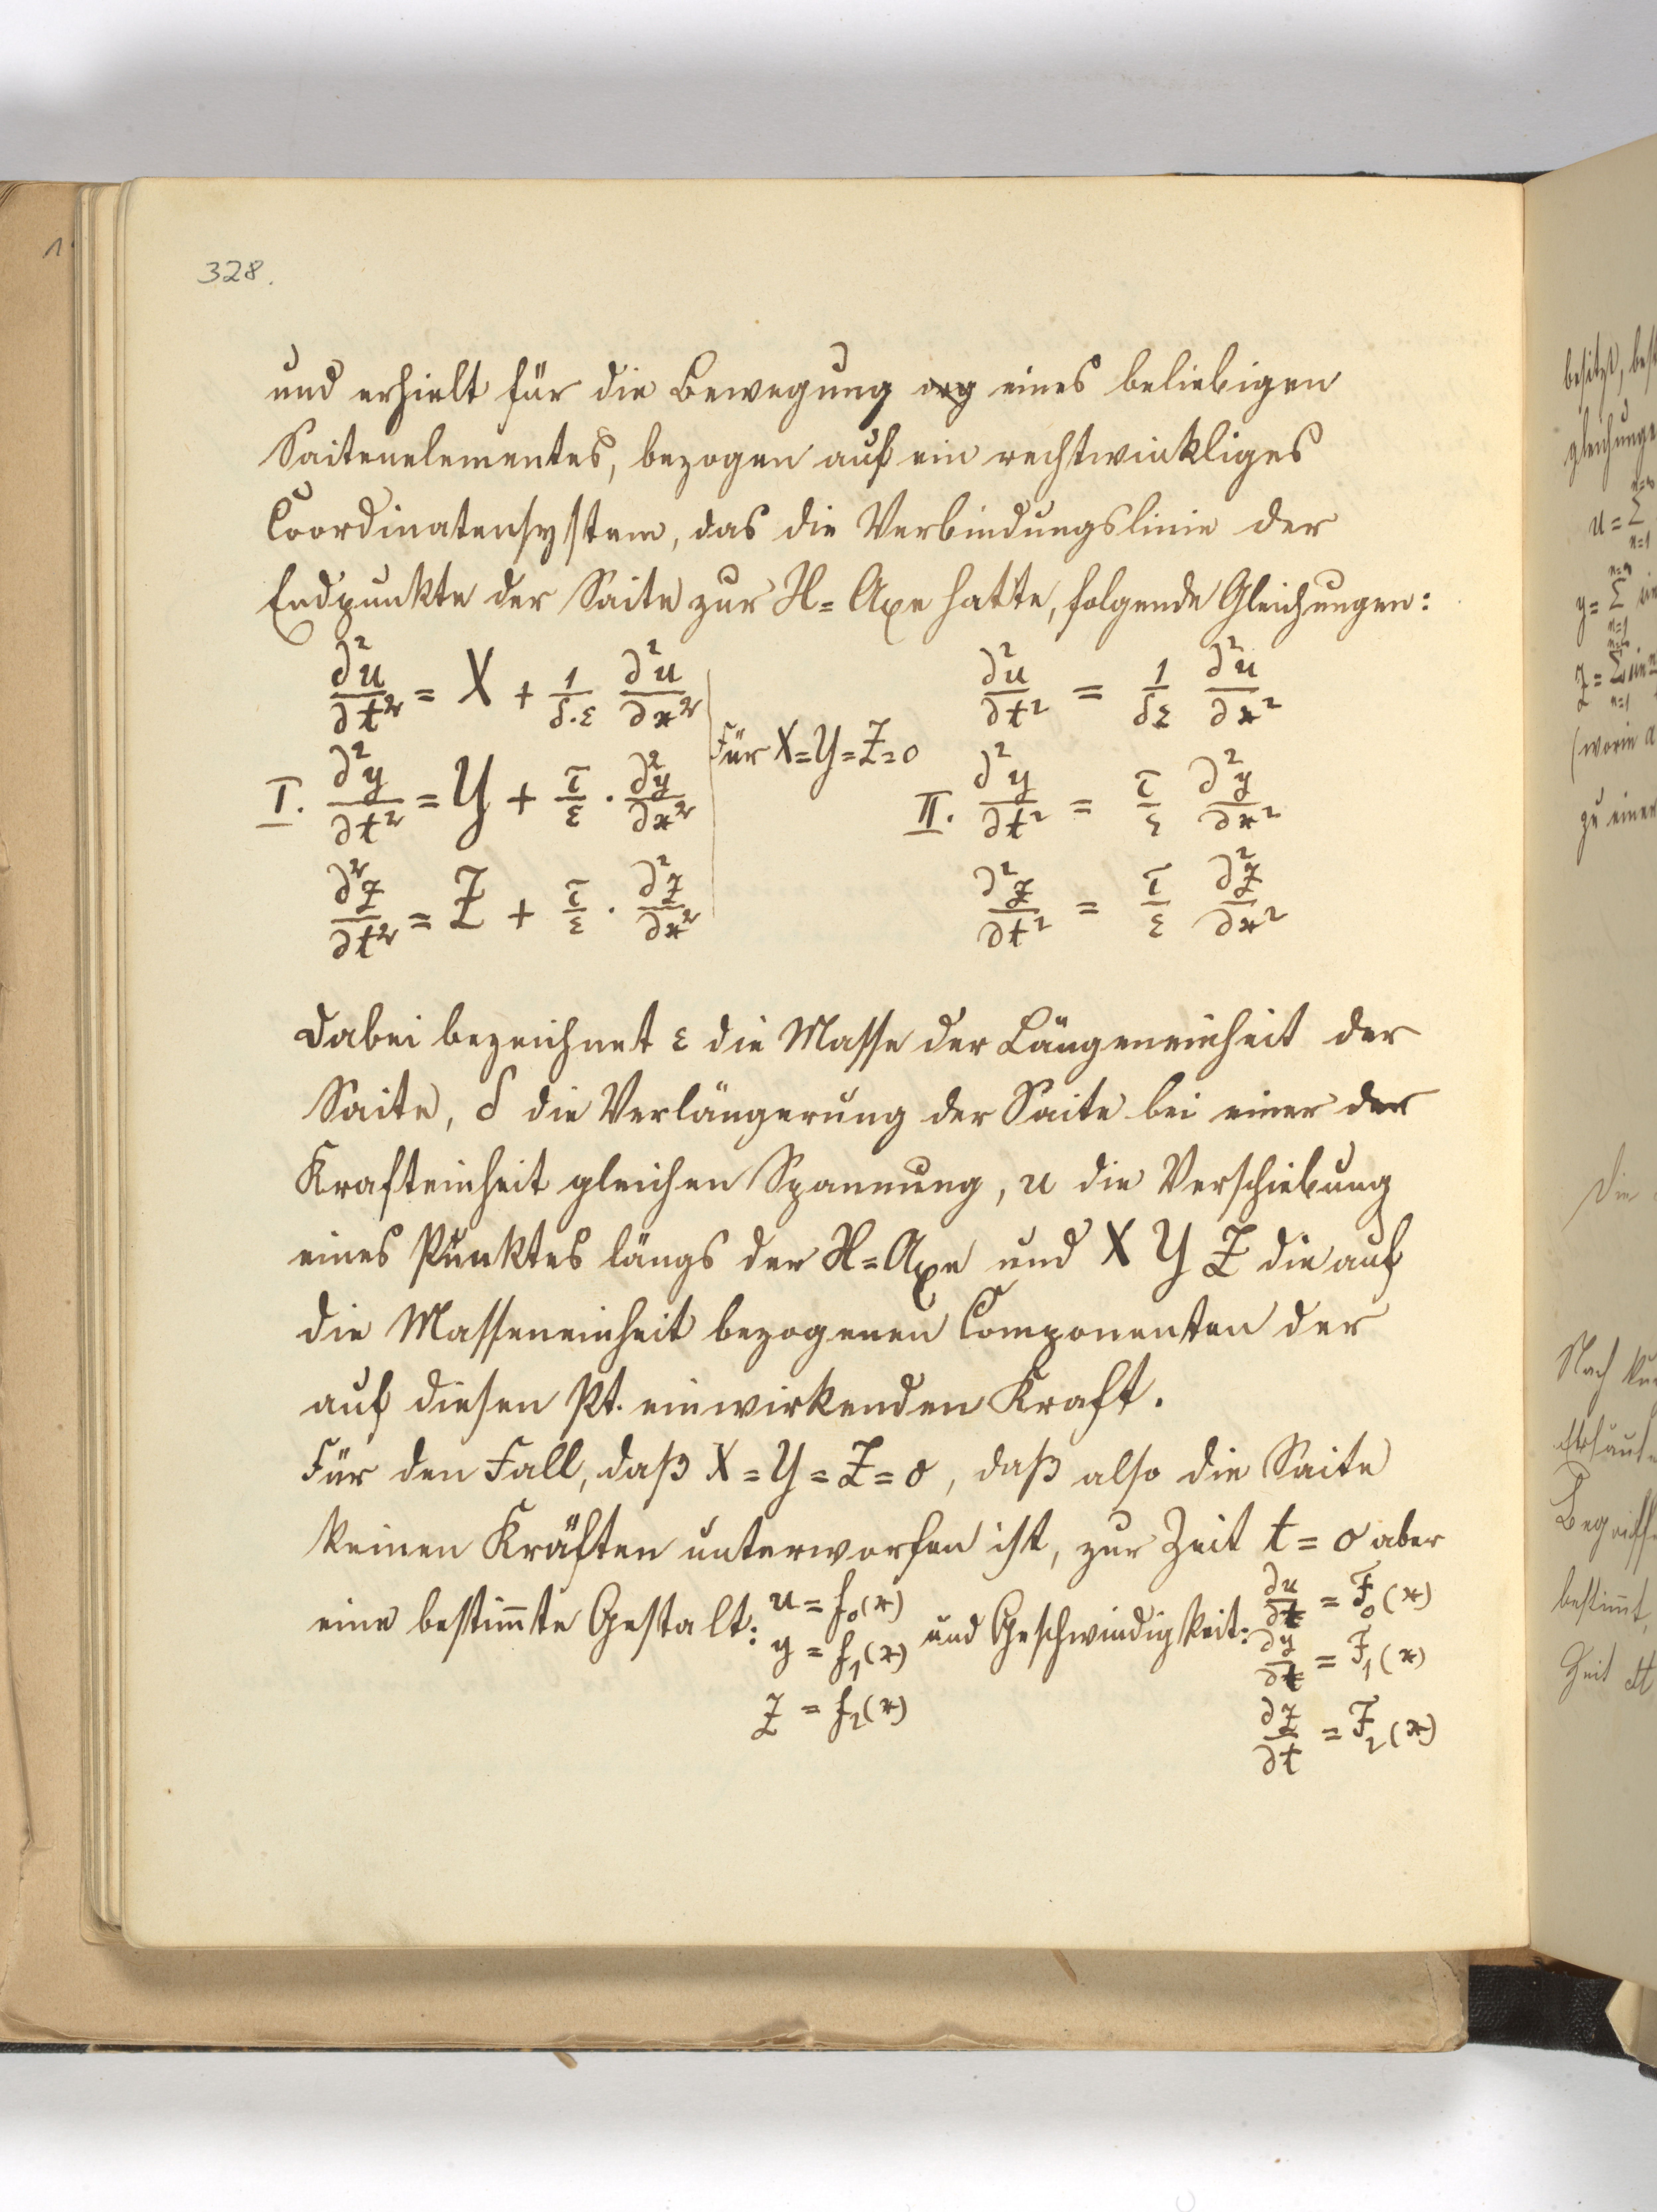 328.
und erhielt für die Bewegung eines beliebigen
Saitenelementes, bezogen auf ein rechtwinkliges
Coordinatensystem, das die Verbindungslinie der
Endpunkte der Saite zur X=Axe hatte, folgende Gleichungen:
∂²u/∂t² = X + 1/δ·ε ∂²u/∂x² ∂²u/∂t² = 1/δε ∂²u/∂x²
für X=Y=Z=0
I. ∂²y/∂t² = Y + τ/ε · ∂²y/∂x² II. ∂²y/∂t² = τ/ε ∂²y/∂x²
∂²z/∂t² = Z + τ/ε · ∂²z/∂x² ∂²z/∂t² = τ/ε ∂²z/∂x²
Dabei bezeichnet ε die Masse der Längeneinheit der
Saite, δ die Verlängerung der Saite bei einer der
Krafteinheit gleichen Spannung, u die Verschiebung
eines Punktes längs der X=Axe und X Y Z die auf
die Masseneinheit bezogenen Componenten der
auf diesen Pt. einwirkenden Kraft.
Für den Fall, daß X=Y=Z=0, daß also die Saite
keinen Kräften unterworfen ist, zur Zeit t=0 aber
eine bestimmte Gestalt: u = f₀(x) und Geschwindigkeit: ∂u/∂t = F₀(x)
y = f₁(x) ∂y/∂t = F₁(x)
z = f₂(x) ∂z/∂t = F₂(x)
besitzt,
u = Σ
y = Σ
z = Σ sin
(worin
zu einer
Die
Nach
Begriff
bestimmt,
Zeit dt